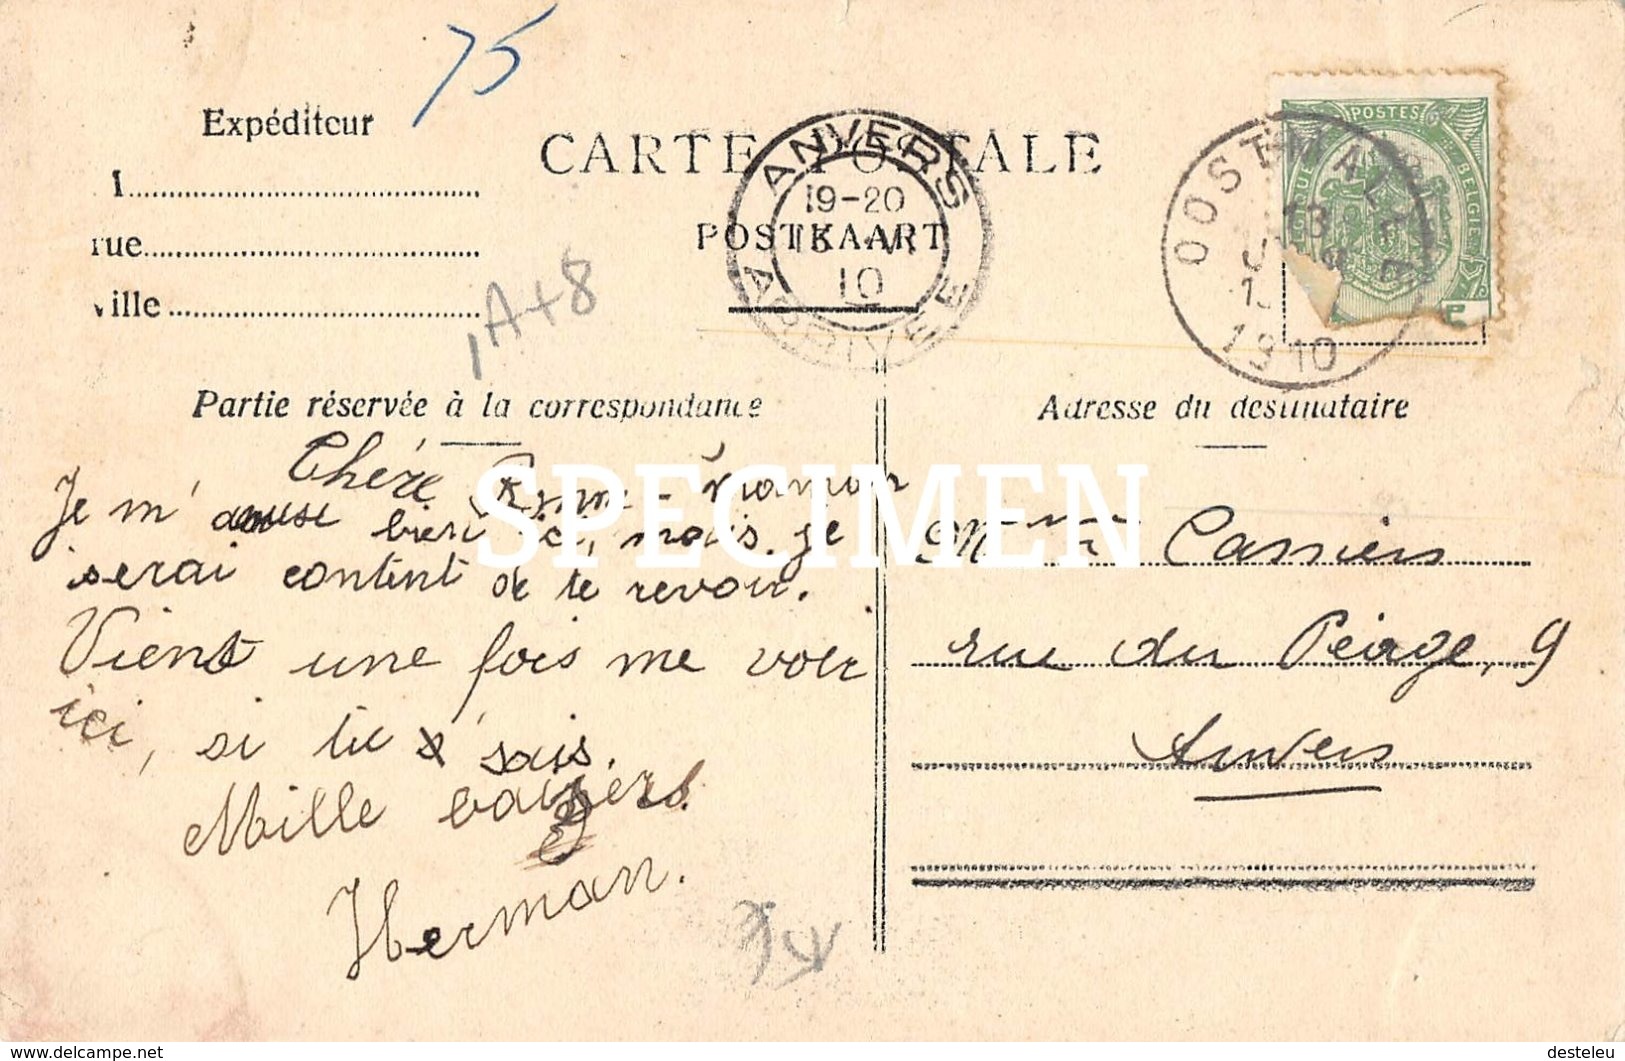 75
Expéditeur
CARTE POSTALE
ANVERS
19-20
10
ARRIVEE
POSTKAART
rue
ville
1A+8
OOSTMALLE
13
1910
POSTES
BELGIE
Partie réservée à la correspondance
Adresse du destinataire
Chére maman
Je m'amuse bien ici, mais je
serai content de te revoir.
Vient une fois me voir
ici, si tu x sais.
Mille baisers.
Herman.
Cassiers
rue du Péage, 9
Anvers
SPECIMEN
www.delcampe.net
desteleu